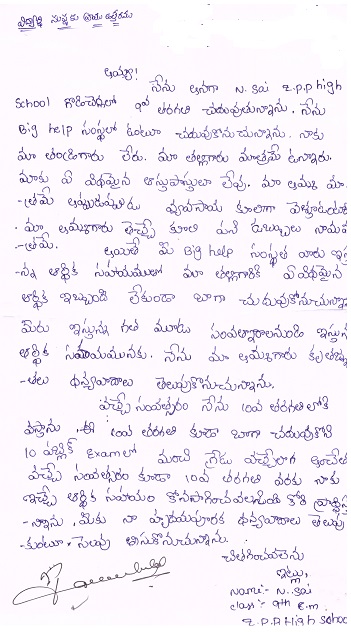 అయ్యా!
నేను అనగా N. Sai Z.P.P high
School గొడిచెర్లలో 9వ తరగతి చదువుతున్నాను. నేను
Big help సంస్థలో ఉంటూ చదువుకొనుచున్నాను. నాకు
మా తండ్రిగారు లేరు. మా తల్లిగారు మాత్రమే ఉన్నారు.
మాకు ఏ విధమైన ఆస్తుపాస్తులు లేవు. మా అమ్మ మా
వ్యవసాయ కూలీగా
మా అమ్మగారు తెచ్చే కూలి డబ్బులు
అయితే మీ Big help సంస్థ వారు
ఆర్థిక సహాయముతో మా తల్లిగారికి ఏ విధమైన
ఆర్థిక ఇబ్బంది లేకుండా బాగా చదువుకొనుచున్నా
మీరు ఇస్తున్న గత మూడు సంవత్సరాలనుండి ఇస్తున్న
ఆర్థిక సహాయమునకు. నేను మా అమ్మగారు కృతజ్ఞ
-తలు ధన్యవాదాలు తెలుపుకొనుచున్నాను.
వచ్చే సంవత్సరం నేను 10వ తరగతి లోకి
వస్తాను. ఈ 10వ తరగతి కూడా బాగా చదువుకొని
10 పబ్లిక్ Exam లో మంచి గ్రేడు వచ్చేలాగ
వచ్చే సంవత్సరం కూడా 10వ తరగతి వరకు నాకు
ఇచ్చే ఆర్థిక సహాయం కొనసాగించవలసిందిగా కోరి
-న్నాను. మీకు నా హృదయపూర్వక ధన్యవాదాలు తెలుపు
-కుంటూ. సెలవు తీసుకొనుచున్నాను.
చిత్తగించవలెను
ఇట్లు,
Name:- N. Sai
class:- 9th E.m
Z.P.P High school